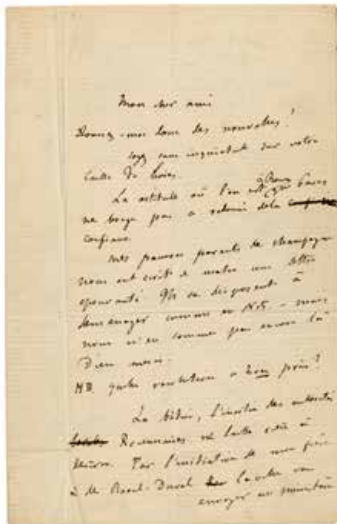 Mon cher ami
Donnez-moi donc des nouvelles !
Soyez sans inquiétude sur votre
caisse de livres.
La certitude où l'on est à Rouen que Paris
ne bouge pas a redonné de la confiance
confiance
Mes pauvres parents de champagne
nous ont écrit ce matin une lettre
épouvantée. Ils se disposent à
déménager comme en - mais
nous n'en sommes pas encore là
Dieu merci.
NB. quelle résolution a prise ?
La bêtise, l'inertie des autorités
Rouennaises ne laisse rien à
désirer. Par l'initiative de mon frère
& de Raoul-Duval la ville va
envoyer au ministère